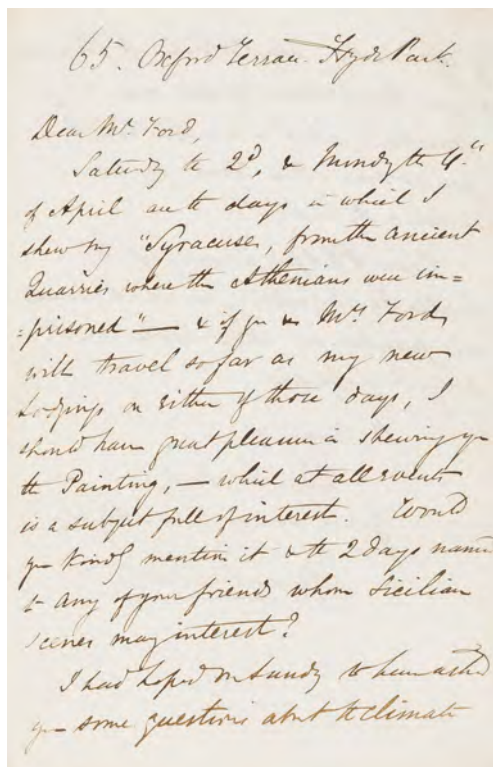 65. Oxford Terrace. Hyde Park.
Dear Mr. Ford,
Saturdy the 2d, & Mundy the 4th
of April are the days in which I
shew my "Syracuse, from the ancient
Quarries where the Athenians were im=
=prisoned" — & if you & Mrs. Ford
will travel so far as my new
Lodgings on either of those days, I
should have great pleasure in shewing you
the Painting, — which at all events
is a subject full of interest. Would
you kindly mention it & the 2 days named
to any of your friends whom Sicilian
scenes may interest?
I had hoped on Sundy to have asked
you some questions about the climate